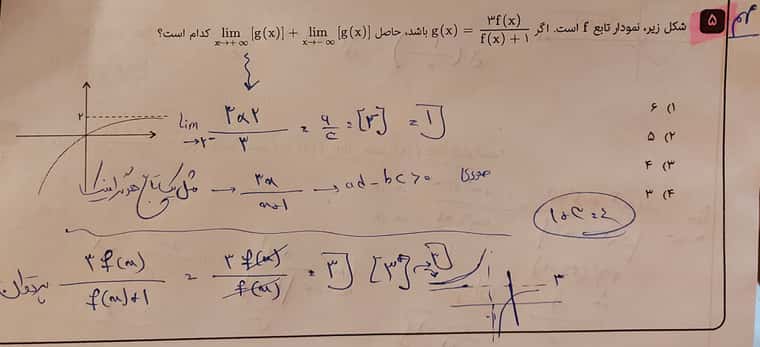 ۵ شکل زیر، نمودار تابع f است. اگر g(x) = ۳f(x) / f(x) + ۱ باشد، حاصل lim x→+∞ [g(x)] + lim x→−∞ [g(x)] کدام است؟
۱) ۶
۲) ۵
۳) ۴
۴) ۳
۲
lim →۲⁻ ۳×۲ / ۳ = = [۲⁻] = ۱
→ → ad - bc > 0 صعودی
1+3=4
۳f(x) / f(x)+1 = ۳f(x) / f(x) = ۳ [۳⁺] → ۳
۳
-1